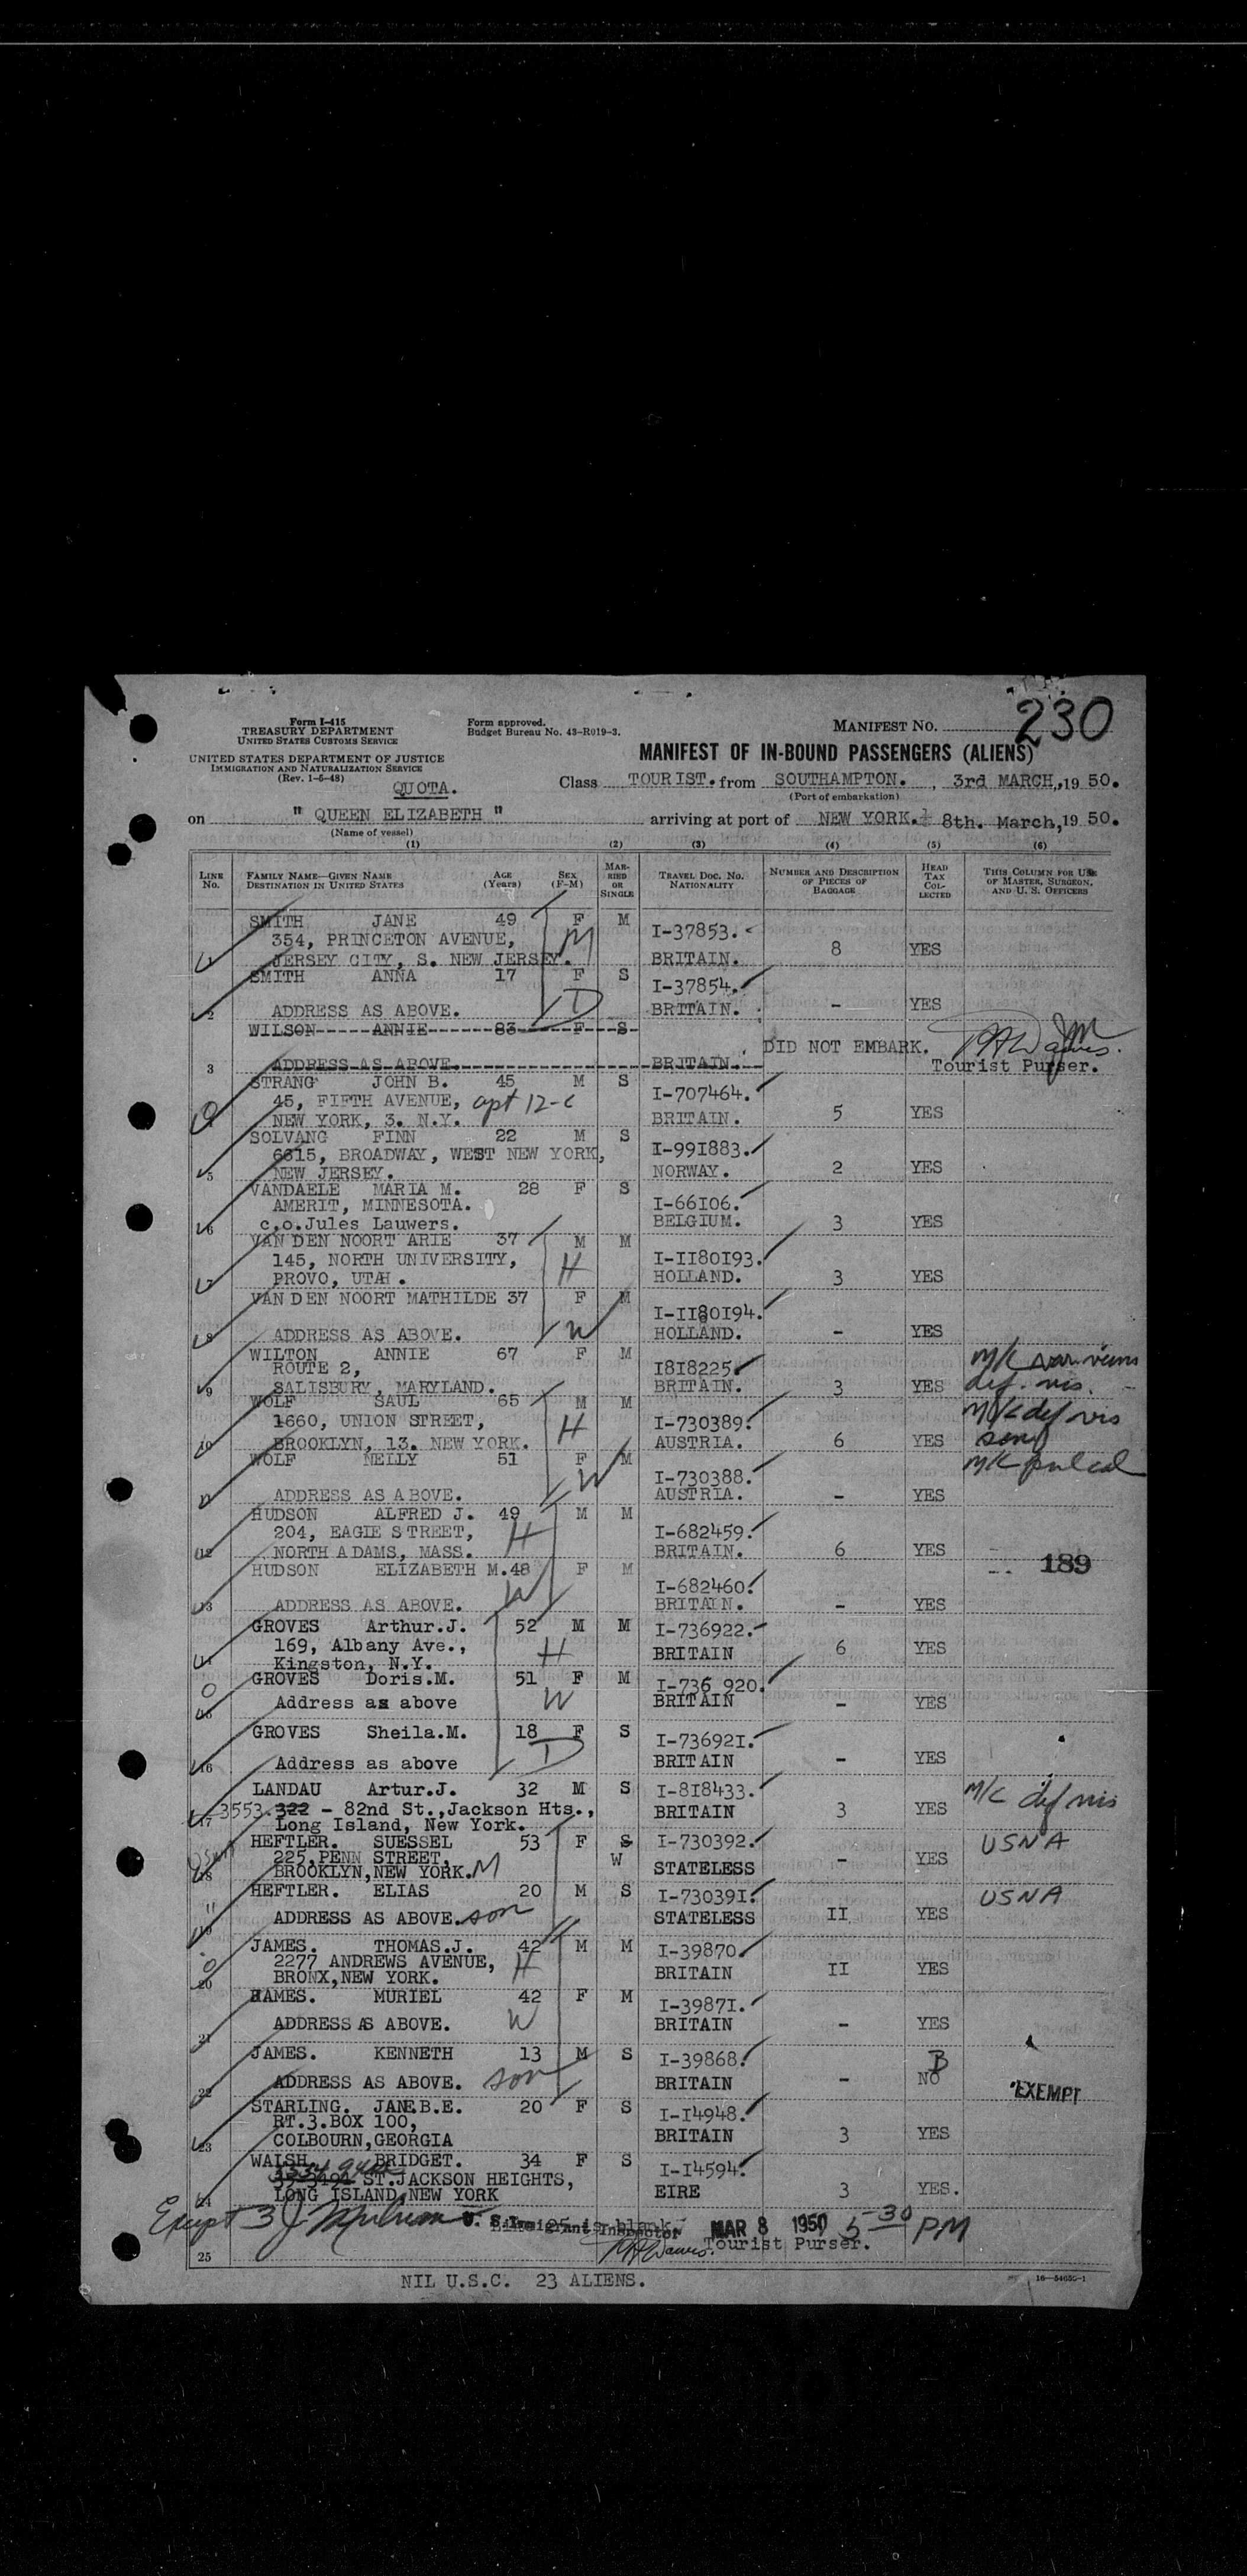 230
Form I-415
TREASURY DEPARTMENT
UNITED STATES CUSTOMS SERVICE
Form approved.
Budget Bureau No. 43-R019-3.
MANIFEST NO.
UNITED STATES DEPARTMENT OF JUSTICE
IMMIGRATION AND NATURALIZATION SERVICE
(Rev. 1-6-48)
MANIFEST OF IN-BOUND PASSENGERS (ALIENS)
QUOTA.
Class TOURIST. from SOUTHAMPTON. , 3rd MARCH, 19 50.
(Port of embarkation)
on " QUEEN ELIZABETH " arriving at port of NEW YORK. 8th. March, 19 50.
(Name of vessel)
(1) (2) (3) (4) (5) (6)
LINE No. FAMILY NAME—GIVEN NAME DESTINATION IN UNITED STATES AGE (Years) SEX (F-M) MARRIED OR SINGLE TRAVEL DOC. NO. NATIONALITY NUMBER AND DESCRIPTION OF PIECES OF BAGGAGE HEAD TAX COLLECTED THIS COLUMN FOR USE OF MASTER, SURGEON, AND U. S. OFFICERS
SMITH JANE 49 F M I-37853.
354, PRINCETON AVENUE, M 8 YES
1 JERSEY CITY, S. NEW JERSEY. BRITAIN.
SMITH ANNA 17 F S I-37854.
2 ADDRESS AS ABOVE. D BRITAIN. - YES
WILSON ANNIE 83 F S DID NOT EMBARK.
3 ADDRESS AS ABOVE. BRITAIN. Tourist Purser.
STRANG JOHN B. 45 M S I-707464.
45, FIFTH AVENUE, apt 12-C 5 YES
NEW YORK, 3. N.Y. BRITAIN.
SOLVANG FINN 22 M S I-991883.
6615, BROADWAY, WEST NEW YORK, 2 YES
5 NEW JERSEY. NORWAY.
VANDAELE MARIA M. 28 F S I-66106.
AMERIT, MINNESOTA. BELGIUM.
6 c.o.Jules Lauwers. 3 YES
VAN DEN NOORT ARIE 37 M M I-1180193.
145, NORTH UNIVERSITY, H HOLLAND.
7 PROVO, UTAH. 3 YES
VAN DEN NOORT MATHILDE 37 F M I-1180194.
8 ADDRESS AS ABOVE. W HOLLAND. - YES
WILTON ANNIE 67 F M I818225.
ROUTE 2,
9 SALISBURY, MARYLAND. BRITAIN. 3 YES def. vis.
WOLF SAUL 65 M M I-730389. M/C def vis
1660, UNION STREET, H
10 BROOKLYN, 13. NEW YORK. AUSTRIA. 6 YES
WOLF NELLY 51 F M I-730388. M/C
ADDRESS AS ABOVE. W AUSTRIA. - YES
HUDSON ALFRED J. 49 M M I-682459.
204, EAGIE STREET, H
12 NORTH ADAMS, MASS. BRITAIN. 6 YES 189
HUDSON ELIZABETH M. 48 F M I-682460.
13 ADDRESS AS ABOVE. W BRITAIN. - YES
GROVES Arthur.J. 52 M M I-736922.
169, Albany Ave., H BRITAIN 6 YES
Kingston, N.Y.
GROVES Doris.M. 51 F M I-736 920.
Address as above W BRITAIN - YES
GROVES Sheila.M. 18 F S I-736921.
16 Address as above D BRITAIN - YES
LANDAU Artur.J. 32 M S I-818433. M/C def vis
17 3553. 322 - 82nd St.,Jackson Hts., BRITAIN 3 YES
Long Island, New York.
HEFTLER. SUESSEL 53 F S W I-730392. USNA
225,PENN STREET, - YES
18 BROOKLYN,NEW YORK. M STATELESS
HEFTLER. ELIAS 20 M S I-730391. USNA
19 ADDRESS AS ABOVE. son STATELESS II YES
JAMES. THOMAS.J. 42 M M I-39870.
2277 ANDREWS AVENUE, H
20 BRONX,NEW YORK. BRITAIN II YES
HAMES. MURIEL 42 F M I-39871.
21 ADDRESS AS ABOVE. W BRITAIN - YES
JAMES. KENNETH 13 M S I-39868.
22 ADDRESS AS ABOVE. son BRITAIN - NO EXEMPT
STARLING. JANE.B.E. 20 F S I-14948.
RT.3.BOX 100,
23 COLBOURN,GEORGIA BRITAIN 3 YES
WALSH. BRIDGET. 34 F S I-14594.
ST.JACKSON HEIGHTS,
24 LONG ISLAND,NEW YORK EIRE 3 YES.
Except 3 U. S. Immigrant Inspector MAR 8 1950 5-30 PM
25 Tourist Purser.
NIL U.S.C. 23 ALIENS.
16—54650-1